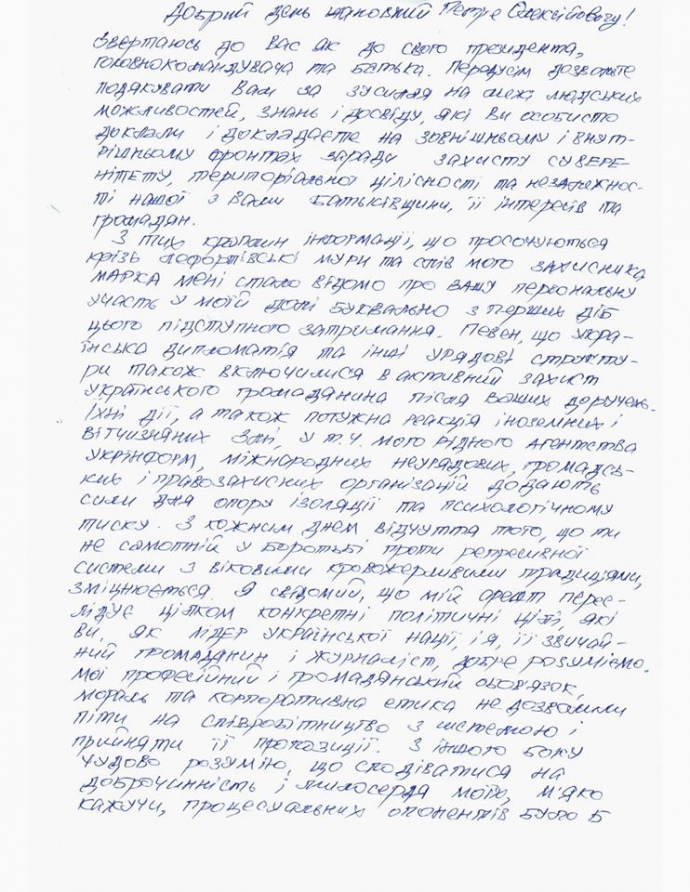 Добрий день шановний Петре Олексійовичу!
Звертаюсь до Вас як до свого президента,
головнокомандувача та батька. Передусім дозвольте
подякувати Вам за зусилля на межі людських
можливостей, знань і досвіду, які Ви особисто
доклали і докладаєте на зовнішньому і внут-
рішньому фронтах заради захисту сувере-
нітету, територіальної цілісності та незалежнос-
ті нашої з Вами Батьківщини, її інтересів та
громадян.
З тих краплин інформації, що просочуються
крізь лефортівські мури та слів мого захисника
МАРКА мені стало відомо про вашу персональну
участь у моїй долі буквально з перших діб
цього підступного затримання. Певен, що укра-
їнська дипломатія та інші урядові структу-
ри також включилися в активний захист
українського громадянина після Ваших доручень.
Їхні дії, а також потужна реакція іноземних і
вітчизняних ЗМІ, у т.ч. мого рідного Агентства
Укрінформ, міжнародних неурядових, громадсь-
ких і правозахисних організацій додають
сили для опору ізоляції та психологічному
тиску. З кожним днем відчуття того, що ти
не самотній у боротьбі проти репресивної
системи з віковими кровожерливими традиціями,
зміцнюється. Я свідомий, що мій арешт перес-
лідує цілком конкретні політичні цілі, які
ви, як лідер Української нації, і я, її звичай-
ний громадянин і журналіст, добре розуміємо.
Мої професійний і громадянський обов'язок,
мораль та корпоративна етика не дозволили
піти на співробітництво з системою і
прийняти її пропозиції. З іншого боку
чудово розумію, що сподіватися на
доброчинність і милосердя моїх, м'яко
кажучи, процесуальних опонентів було б